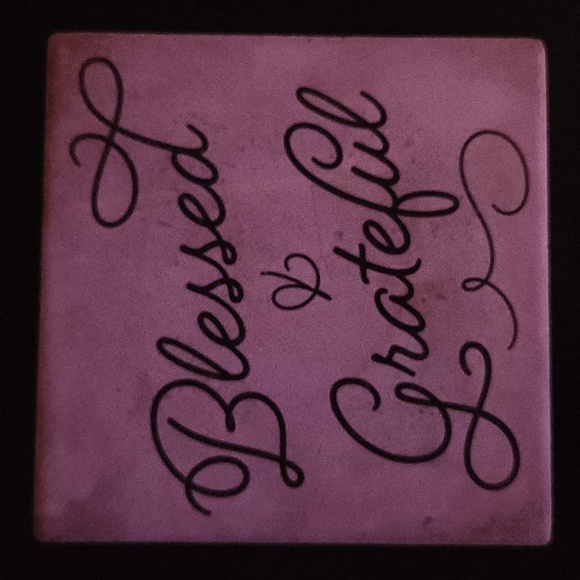 Blessed
&
Grateful